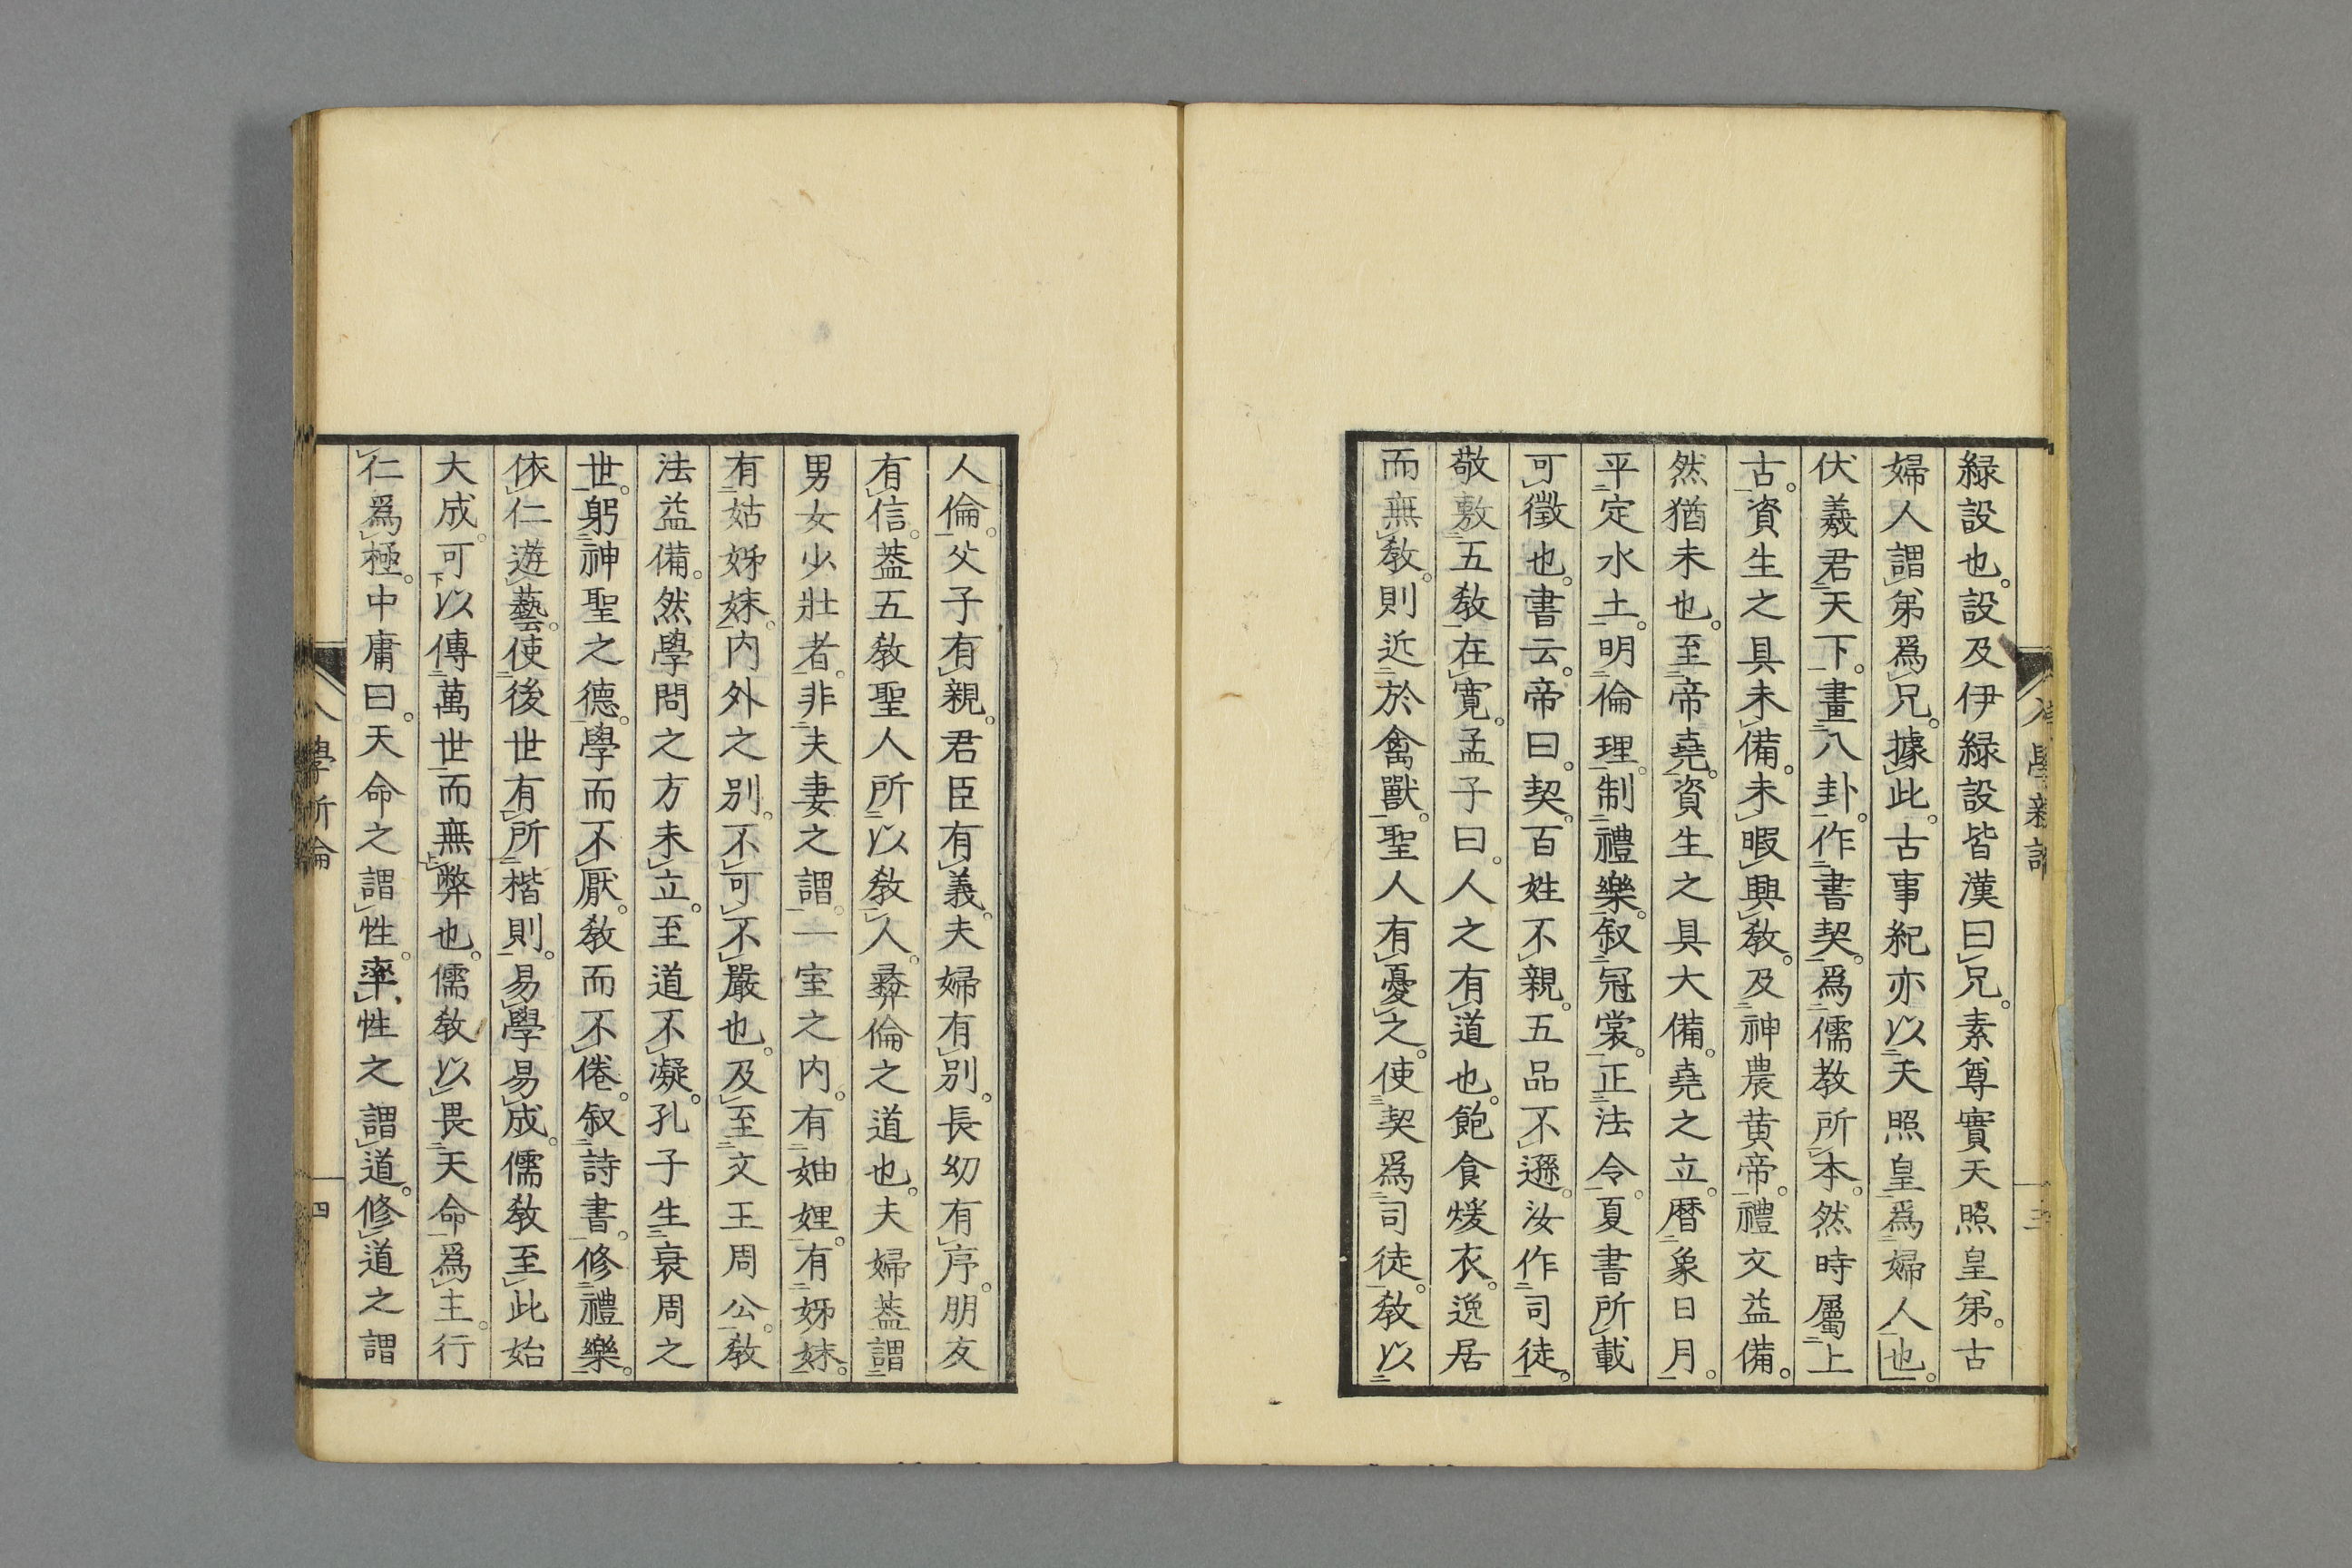 緑設也。設及伊緑設皆漢曰兄。素尊實天照皇弟。古
婦人謂弟爲兄。據此。古事紀亦以天照皇爲婦人也。
伏羲君天下。畫八卦。作書契。爲儒教所本。然時屬上
古。資生之具未備。未暇興教。及神農黄帝。禮文益備。
然猶未也。至帝堯。資生之具大備。堯之立。暦象日月。
平定水土。明倫理。制禮樂。叙冠裳。正法令。夏書所載
可徵也。書云。帝曰。契。百姓不親。五品不遜。汝作司徒。
敬敷五教在寛。孟子曰。人之有道也。飽食煖衣。逸居
而無教。則近於禽獸。聖人有憂之。使契爲司徒。教以
三
人倫。父子有親。君臣有義。夫婦有別。長幼有序。朋友
有信。葢五教聖人所以教人。彛倫之道也。夫婦葢謂
男女少壯者。非夫妻之謂。一室之内。有妯娌。有姊妹。
有姑姊妹。内外之別。不可不嚴也。及至文王周公。教
法益備。然學問之方未立。至道不凝。孔子生衰周之
世。躬神聖之德。學而不厭。教而不倦。叙詩書。修禮樂。
依仁遊藝。使後世有所楷則。易學易成。儒教至此始
大成。可以傳萬世而無弊也。儒教以畏天命爲主。行
仁爲極。中庸曰。天命之謂性。率性之謂道。修道之謂
四